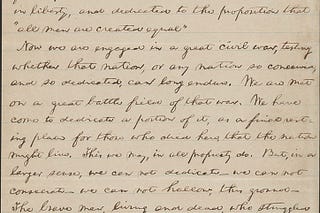 in liberty, and dedicated to the proposition that
"all men are created equal"
Now we are engaged in a great civil war, testing
whether that nation, or any nation so conceived,
and so dedicated, can long endure. We are met
on a great battle field of that war. We have
come to dedicate a portion of it, as a final rest-
ing place for those who died here, that the nation
might live. This we may, in all propriety do. But, in a
larger sense, we can not dedicate — we can not
consecrate — we can not hallow, this ground —
The brave men, living and dead, who struggled